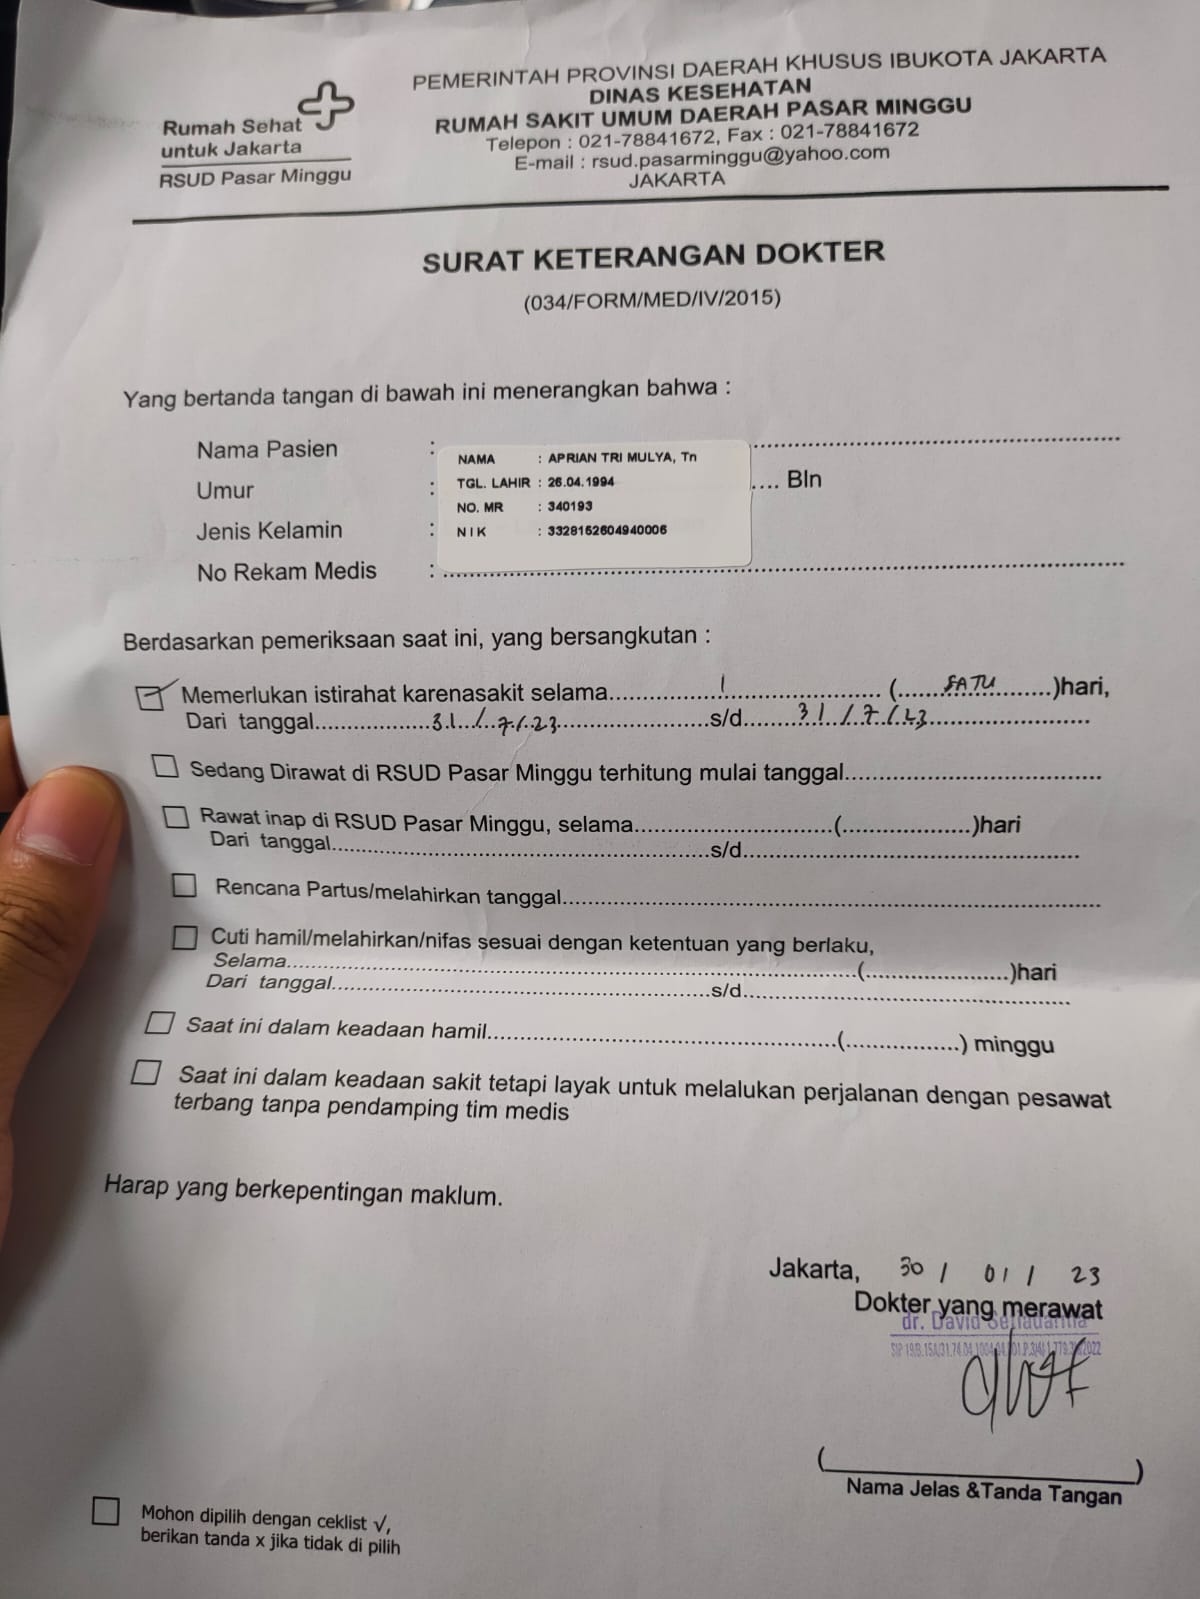 Rumah Sehat
untuk Jakarta
RSUD Pasar Minggu
PEMERINTAH PROVINSI DAERAH KHUSUS IBUKOTA JAKARTA
DINAS KESEHATAN
RUMAH SAKIT UMUM DAERAH PASAR MINGGU
Telepon : 021-78841672, Fax : 021-78841672
E-mail : rsud.pasarminggu@yahoo.com
JAKARTA
SURAT KETERANGAN DOKTER
(034/FORM/MED/IV/2015)
Yang bertanda tangan di bawah ini menerangkan bahwa :
Nama Pasien :
Umur : .... Bln
Jenis Kelamin :
No Rekam Medis :
NAMA : APRIAN TRI MULYA, Tn
TGL. LAHIR : 26.04.1994
NO. MR : 340193
N I K : 3328162604940006
Berdasarkan pemeriksaan saat ini, yang bersangkutan :
Memerlukan istirahat karenasakit selama 1 (SATU)hari,
Dari tanggal 31/7/23 s/d 31/7/23
Sedang Dirawat di RSUD Pasar Minggu terhitung mulai tanggal
Rawat inap di RSUD Pasar Minggu, selama (....................)hari
Dari tanggal s/d
Rencana Partus/melahirkan tanggal
Cuti hamil/melahirkan/nifas sesuai dengan ketentuan yang berlaku,
Selama (.......................)hari
Dari tanggal s/d
Saat ini dalam keadaan hamil (..................) minggu
Saat ini dalam keadaan sakit tetapi layak untuk melalukan perjalanan dengan pesawat
terbang tanpa pendamping tim medis
Harap yang berkepentingan maklum.
Jakarta, 30 / 01 / 23
Dokter yang merawat
dr. David
(____________________)
Nama Jelas &Tanda Tangan
Mohon dipilih dengan ceklist √,
berikan tanda x jika tidak di pilih